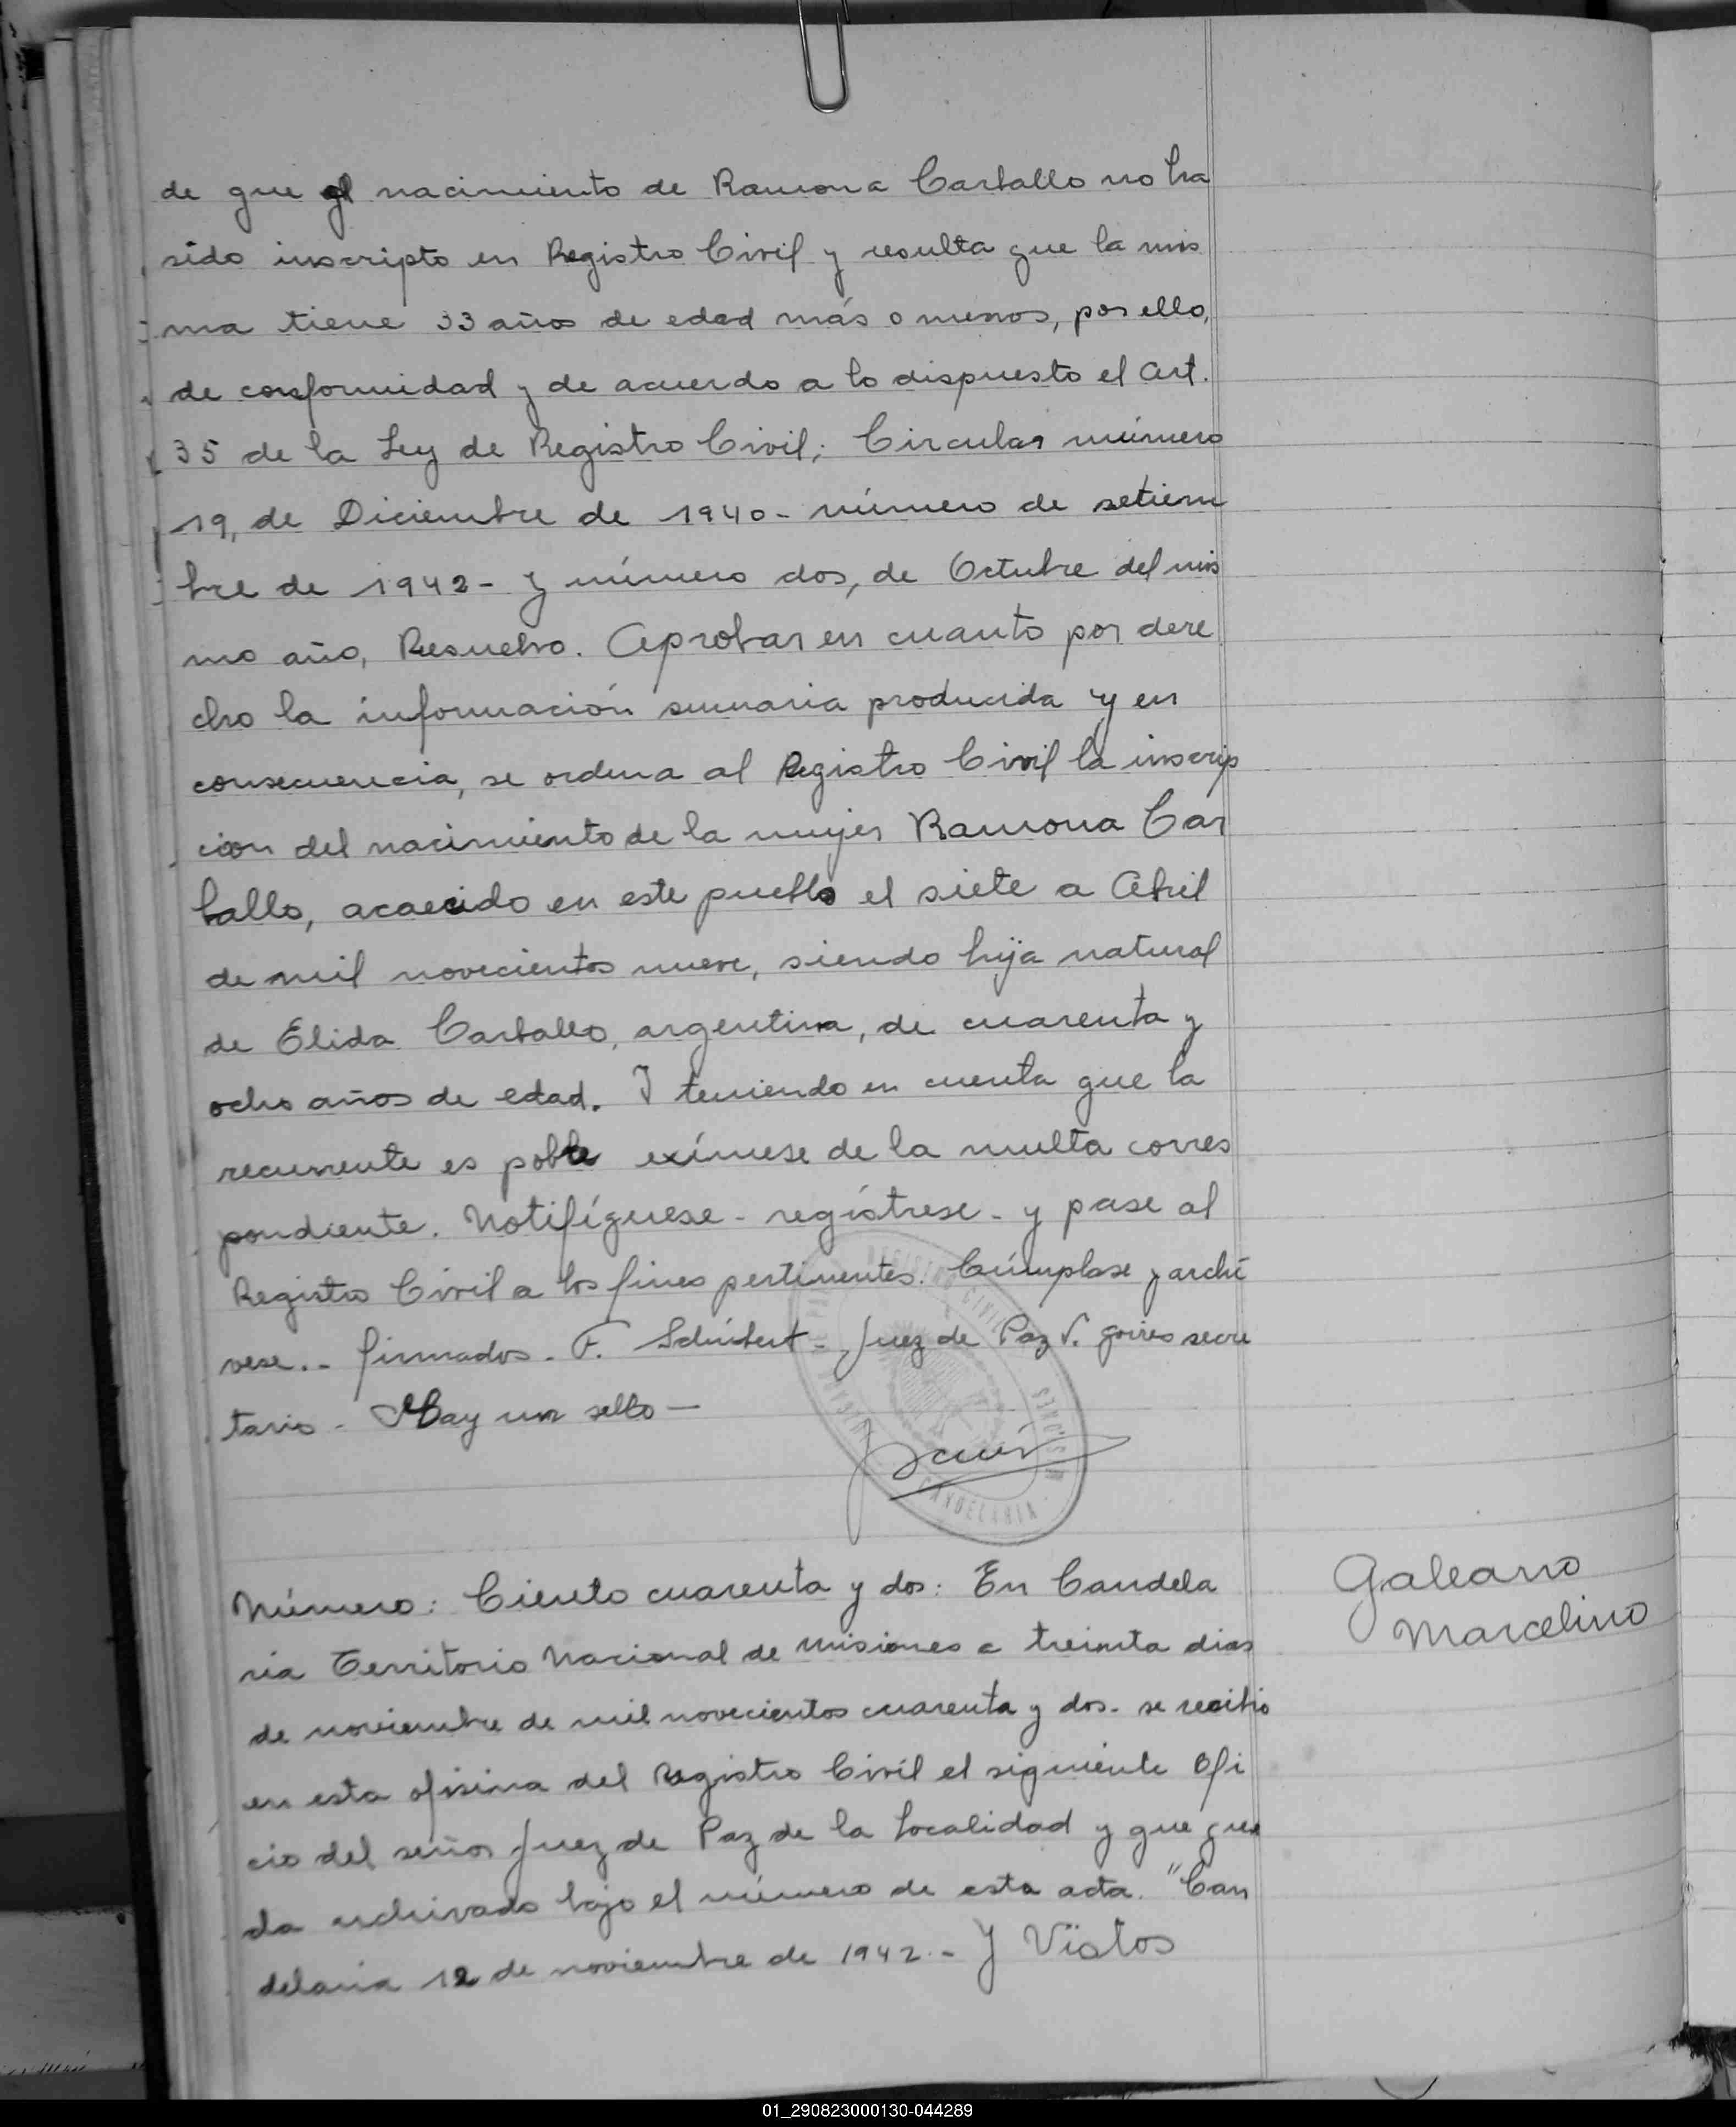 de que el nacimiento de Ramona Carballo no ha
sido inscripto en Registro Civil y resulta que la mis
ma tiene 33 años de edad más o menos, por ello,
de conformidad y de acuerdo a lo dispuesto el Art.
35 de la Ley de Registro Civil; Circular número
19, de Diciembre de 1940- número de setiem
bre de 1942- y número dos, de Octubre del mis
mo año, Resuelvo. Aprobar en cuanto por dere
cho la información sumaria producida y en
consecuencia, se ordena al Registro Civil la inscrip
cion del nacimiento de la mujer Ramona Car
ballo, acaecido en este pueblo el siete a Abril
de mil novecientos nueve, siendo hija natural
de Elida Carballo, argentina, de cuarenta y
ocho años de edad. Y teniendo en cuenta que la
recurrente es pobre exímese de la multa corres
pondiente. Notifíquese - regístrese - y pase al
Registro Civil a los fines pertinentes. Cúmplase y archí
vese.- firmados - F. Schubert - Juez de Paz V. secre
tario - Hay un sello —
REGISTRO CIVIL
MISIONES
CANDELARIA
Número: Ciento cuarenta y dos: En Candela
ria Territorio Nacional de Misiones a treinta dias
de noviembre de mil novecientos cuarenta y dos - se recibio
en esta ofisina del Registro Civil el siguiente Ofi
cio del señor Juez de Paz de la localidad y que que
da archivado bajo el número de esta acta. "Can
delaria 12 de noviembre de 1942.- Y Vistos
Galeano
Marcelino
01_290823000130-044289